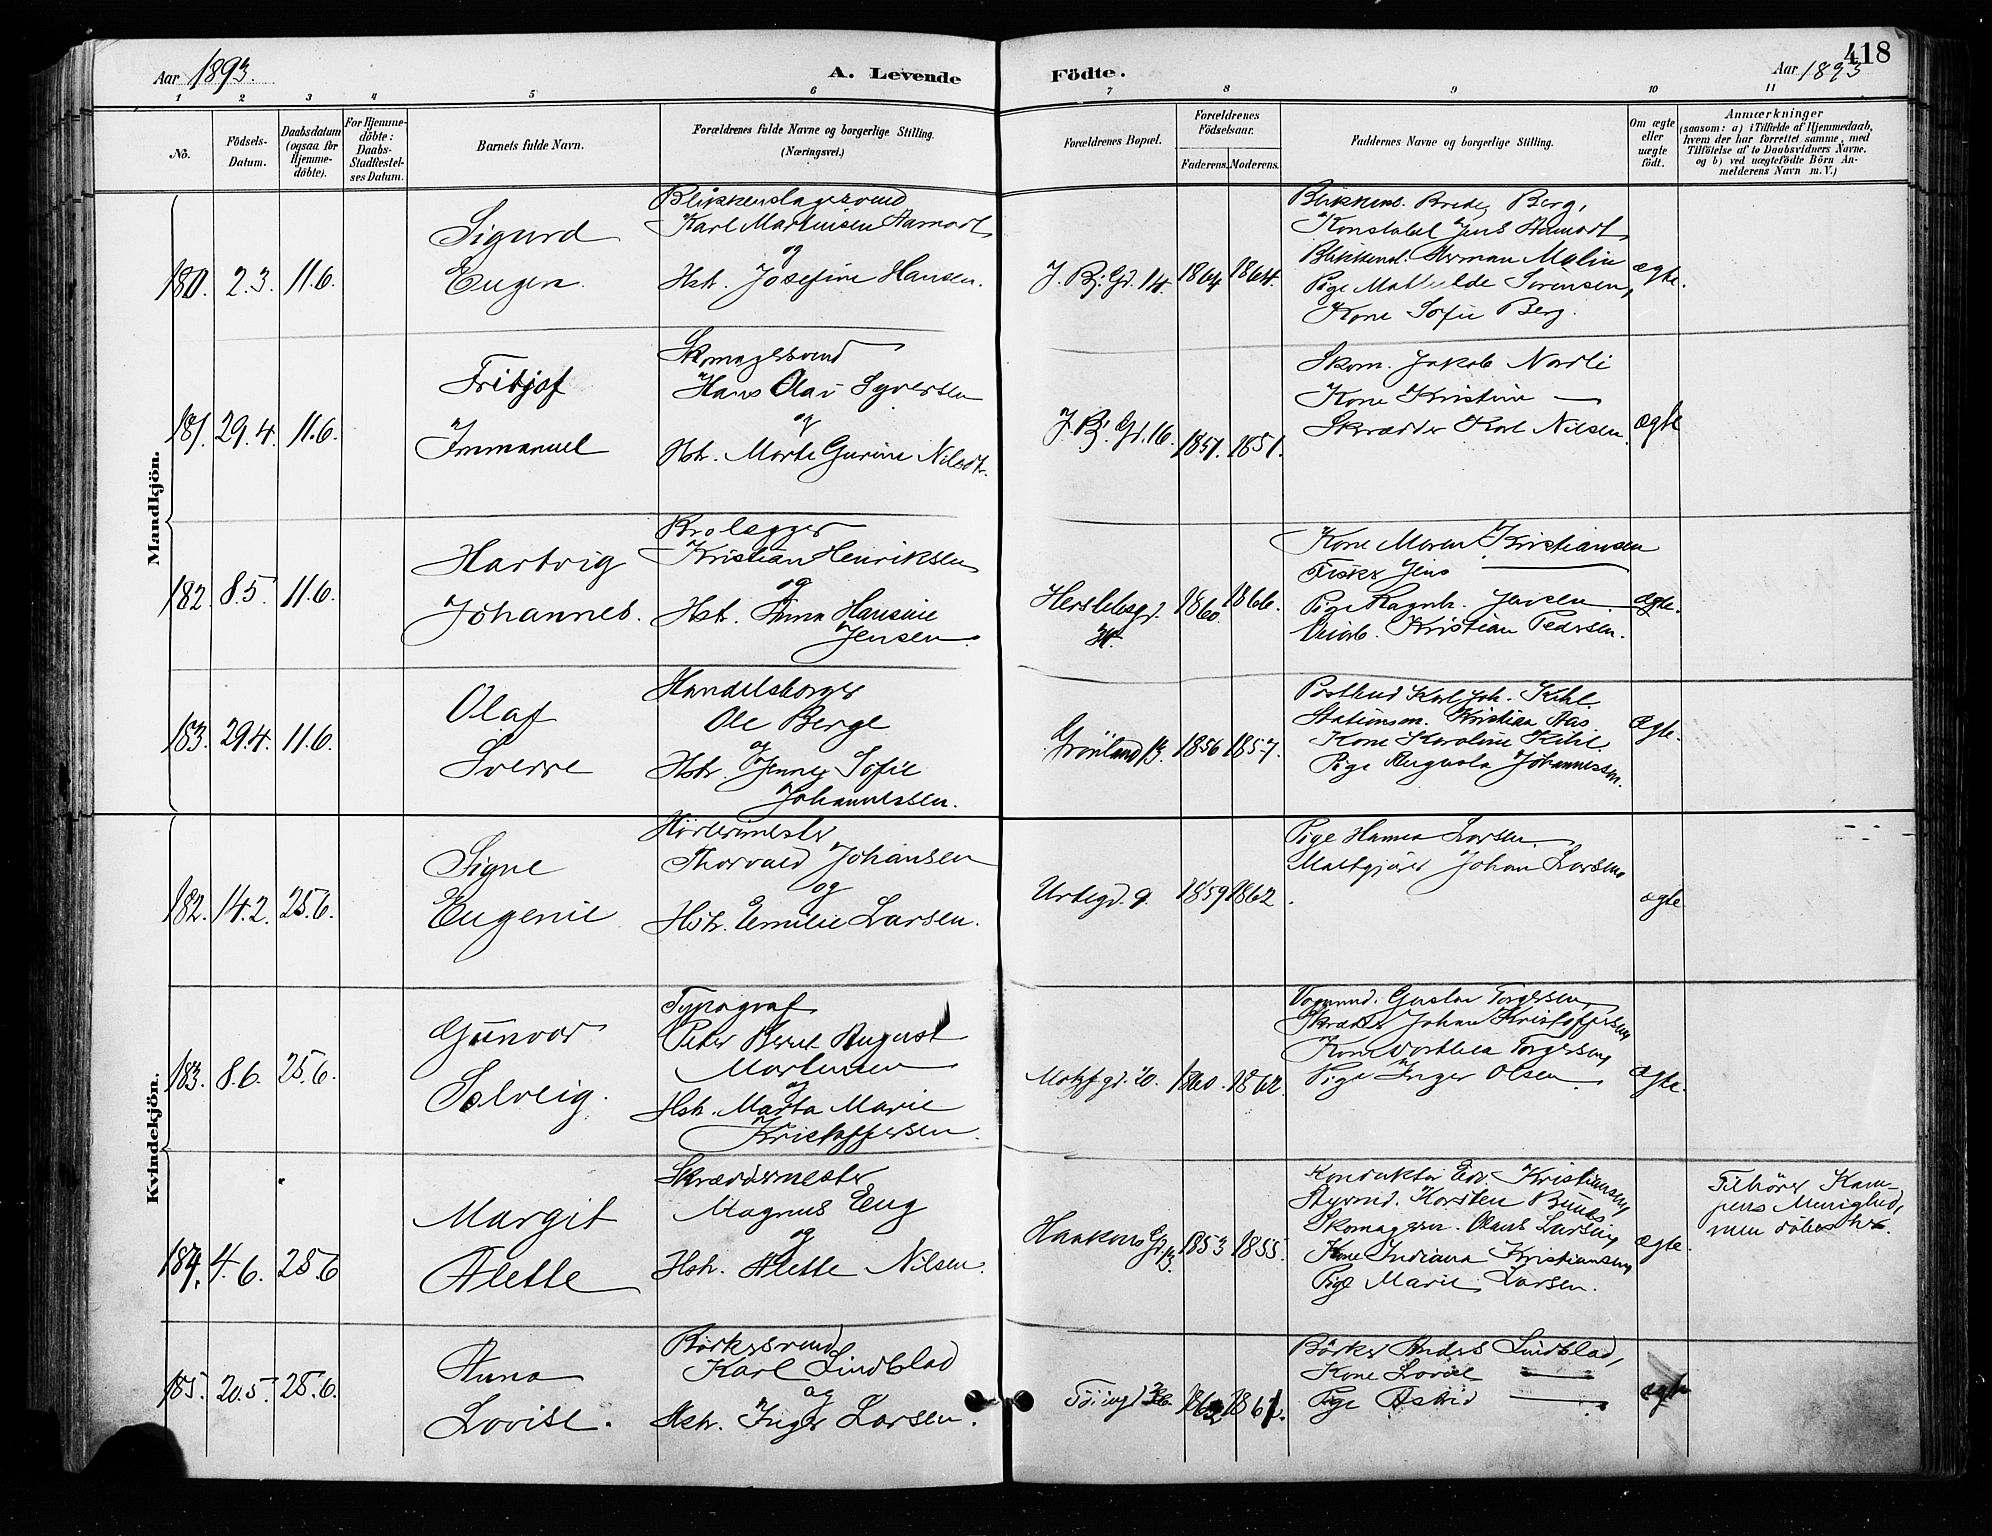 418
Aar 1893.
A. Levende
Födte.
Aar 1893
1 2 3 4 5 6 7 8 9 10 11
No.
Födsels-
Datum.
Daabsdatum
(ogsaa for
Hjemme-
döbte).
For Hjemme-
döbte:
Daabs-
Stadfæstel-
ses Datum.
Barnets fulde Navn.
Forældrenes fulde Navne og borgerlige Stilling.
(Næringsvei.)
Forældrenes Bopæl.
Forældrenes
Födselsaar.
Faderens. Moderens.
Faddernes Navne og borgerlige Stilling.
Om ægte
eller
uægte
födt.
Anmærkninger
(saasom: a) i Tilfælde af Hjemmedaab,
hvem der har forrettet samme, med
Tilföielse af to Daabsvidners Navne,
og b) ved uægtefödte Börn An-
melderens Navn m. V.)
Mandkjön.
180. 2.3. 11.6.
Sigurd
Eugen.
Blikkenslagersvend
Karl Martinsen Aamodt
og
Hst. Josefine Hansen.
J. Bj. Gd. 14. 1864 1864.
Blikkens. Brede Berg,
Konstabel Jens Aamodt,
Blikkensl. Herman Malin
Pige Mathilde Sørensen,
Kone Sofie Berg.
ægte.
181. 29.4. 11.6.
Fritjof
Immanuel
Skomagersvend
Hans Olav Syversen
og
Hst. Marte Gurine Nilsdtr.
J. Bj. Gd. 16. 1851. 1851.
Skom. Jakob Nordli
Kone Kristine —
Skrædder Karl Nilsen.
ægte
182. 8.5. 11.6.
Hartvig
Johannes.
Brolægger
Kristian Henriksen
og
Hst. Anna Hansine
Jensen.
Herslebsgd. 1860. 1866.
Kone Maren Kristiansen
Fisker Jens —
Pige Ragnh. Jensen.
Kristian Pedersen.
ægte.
183. 29.4. 11.6.
Olaf
Sverre
Handelsborger
Ole Berge
og
Hst. Jenny Sofie
Johannessen.
Grønland 13. 1856 1857.
Postbud Karl Joh. Kihl.
Stationsm. Kristian Aas.
Kone Karoline Kihl.
Pige Augusta Johannessen.
Ægte.
Kvindekjön.
182. 14.2. 25.6.
Signe
Eugenie
Thorvald Johansen
og
Hst. Emilie Larsen.
Urtegd. 9. 1859 1862.
Pige Hanna Larsen.
Maltgjører Johan Larsen
ægte
183. 8.6. 25.6.
Gunvor
Solveig.
Typograf
Peter Bernt August
Mortensen
og
Hst. Marta Marie
Kristoffersen.
Motzfgd. 20. 1860. 1862.
Vognmd. Gustav Torgersen,
Skrædder Johan Kristoffersen,
Kone Dorthea Torgersen,
Pige Inger Olsen.
ægte.
184. 4.6. 25.6
Margit
Alette
Skræddermester
Magnus Eng
og
Hst. Alette Nilsen.
Haakons Gd 13. 1853 1855.
Konduktør Edv. Kristiansen,
Styrmd. Torsten Bunes
Skomagersv. Olaus Larsen,
Kone Indiana Kristiansen,
Pige Marie Larsen.
ægte.
Tilhører Kam-
pens Menighed,
men døbes her.
185. 20.5. 25.6.
Anna
Lovise.
Børkersvend
Karl Lindblad
og
Hst. Inger Larsen.
Tøiengd 1862 1861.
Børker Anders Lindblad,
Kone Lovise —
Pige Astrid —
ægte